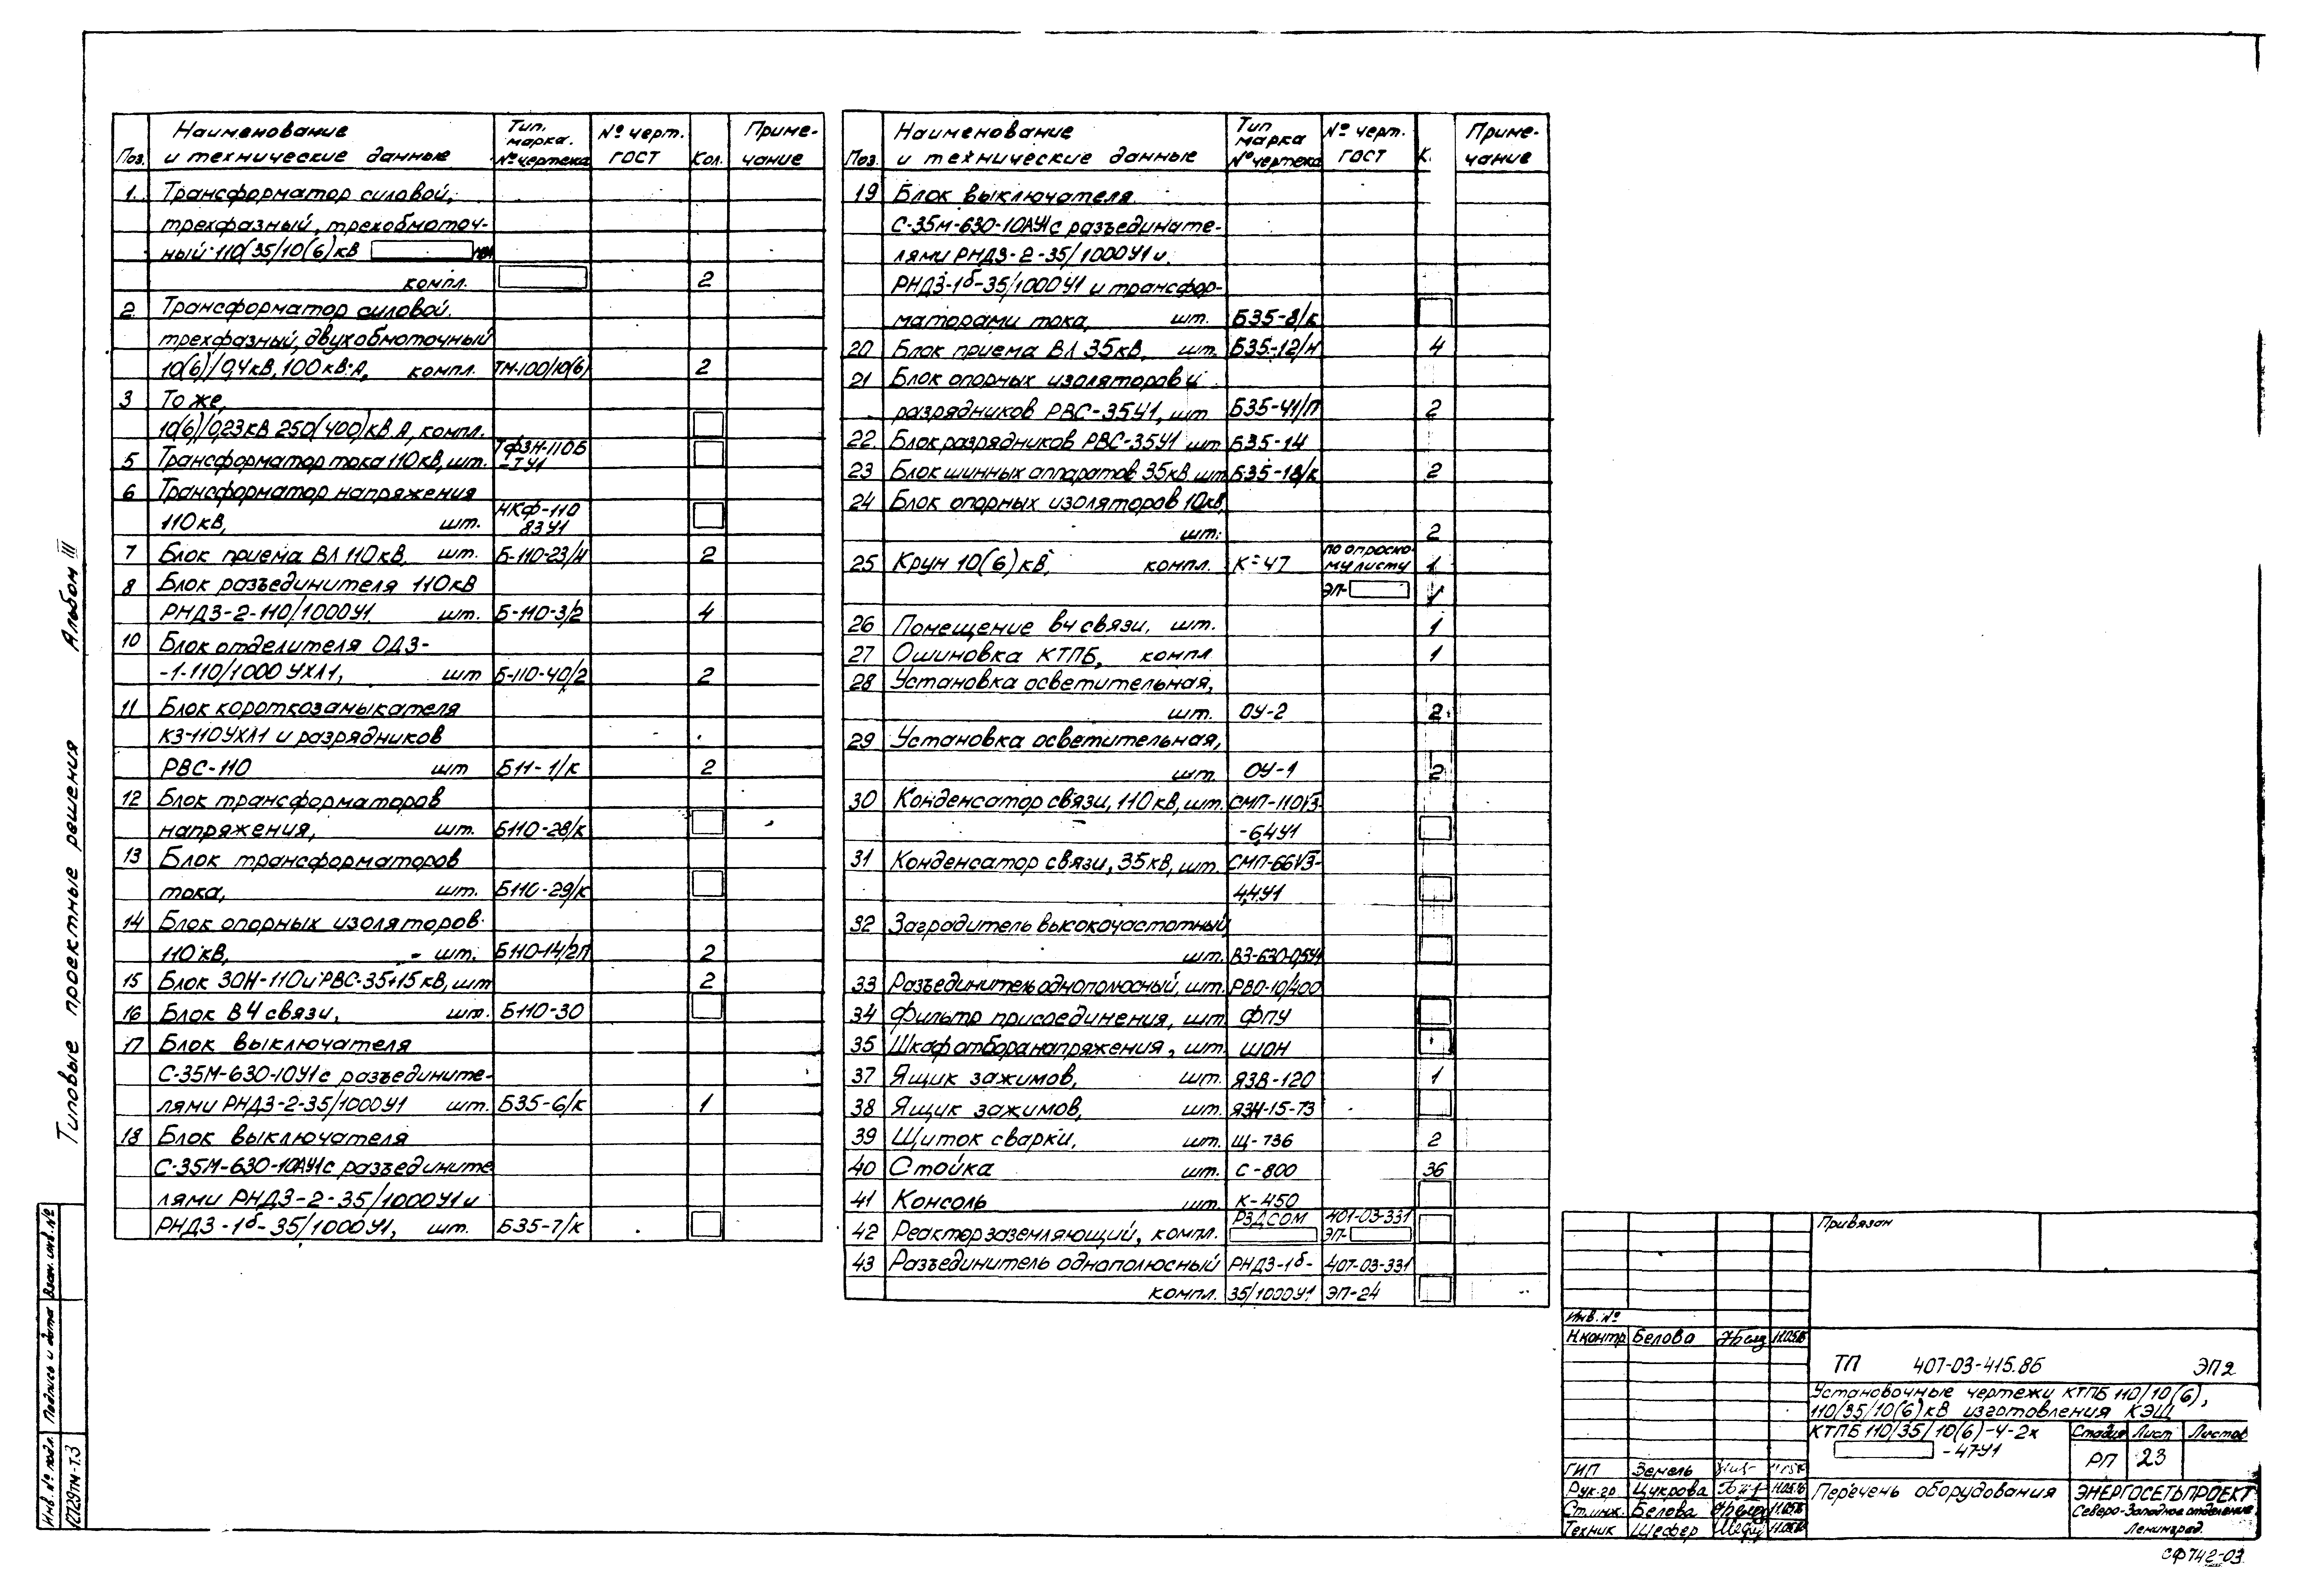 Наименование и технические данные
Поз.
Тип. марка. № чертежа
№ черт. ГОСТ
Кол.
Приме-чание
1. Трансформатор силовой,
трехфазный, трехобмоточ-
ный 110/35/10(6) кВ
компл. 2
2 Трансформатор силовой
трехфазный, двухобмоточный
10(6)/0,4кВ, 100 кВ·А, компл. ТМ-100/10(6) 2
3 То же,
10(6)/0,23кВ 250(400) кВ А, компл.
5 Трансформатор тока 110 кВ, шт. ТФЗН-110Б -ТУ1
6 Трансформатор напряжения
110 кВ, шт. НКФ-110 83У1
7 Блок приема ВЛ 110 кВ, шт. Б-110-23/Н 2
8 Блок разъединителя 110кВ
РНДЗ-2-110/1000У1 шт. Б-110-3/2 4
10 Блок отделителя ОДЗ-
-1-110/1000 УХЛ1, шт Б-110-40/2 2
11 Блок короткозамыкателя
КЗ-110УХЛ1 и разрядников
РВС-110 шт Б11-1/К 2
12 Блок трансформаторов
напряжения, шт. Б110-28/К
13 Блок трансформаторов
тока, шт. Б110-29/К
14 Блок опорных изоляторов
110 кВ, шт. Б110-14/2П 2
15 Блок ЗОН-110 и РВС-35+15 кВ, шт 2
16 Блок ВЧ связи, шт. Б110-30
17 Блок выключателя
С-35М-630-10У1 с разъедините-
лями РНДЗ-2-35/1000У1 шт. Б35-6/К 1
18 Блок выключателя
С-35М-630-10АУ1 с разъедините
лями РНДЗ-2-35/1000У1 и
РНДЗ-1б-35/1000У1, шт. Б35-7/К
Наименование и технические данные
Поз.
Тип марка № чертежа
№ черт. ГОСТ
К.
Приме-чание
19 Блок выключателя
С-35М-630-10АУ1 с разъедините-
лями РНДЗ-2-35/1000У1 и
РНДЗ-1б-35/1000У1 и трансфор-
маторами тока, шт. Б35-8/К
20 Блок приема ВЛ 35кВ, шт. Б35-12/Н 4
21 Блок опорных изоляторов и
разрядников РВС-35У1, шт. Б35-41/П 2
22. Блок разрядников РВС-35У1 шт Б35-14
23 Блок шинных аппаратов 35кВ шт Б35-18/К 2
24 Блок опорных изоляторов 10кВ,
шт. 2
25 Крун 10(6) кВ, компл. К-47 по опросно-му листу 1
ЭП- 1
26 Помещение вч связи, шт. 1
27 Ошиновка КТПБ, компл 1
28 Установка осветительная,
шт. ОУ-2 2
29 Установка осветительная,
шт. ОУ-1 2
30 Конденсатор связи, 110 кВ, шт. СМП-110√3-
-6,4У1
31 Конденсатор связи, 35 кВ, шт. СМП-66√3-
4,4У1
32 Заградитель высокочастотный,
шт. ВЗ-630-0,5У1
33 Разъединитель однополюсный, шт. РВО-10/400
34 Фильтр присоединения, шт ФПУ
35 Шкаф отбора напряжения, шт. ШОН
37 Ящик зажимов, шт. ЯЗВ-120 1
38 Ящик зажимов, шт. ЯЗН-15-73
39 Щиток сварки, шт. Щ-736 2
40 Стойка шт. С-800 36
41 Консоль шт. К-450
42 Реактор заземляющий, компл. РЗДСОМ 401-03-331 ЭП-
43 Разъединитель однополюсный РНДЗ-1б- 407-03-331
компл. 35/1000У1 ЭП-24
Типовые проектные решения Альбом III
Взам. инв. №
Подпись и дата
Инв. № подл.
12129тм-Т.3
Привязан
Инв. №
Н.контр Белова 11.05.86
ТП 407-03-415.86 ЭП2
Установочные чертежи КТПБ 110/10(6),
110/35/10(6) кВ изготовления КЭЩ
КТПБ 110/35/10(6)-4-2х
-47У1
Стадия Лист Листов
РП 23
ГИП Земель
Рук.гр Цукрова 11.05.86
Ст.инж. Белова 11.05.86
Техник Шефер 11.05.86
Перечень оборудования
ЭНЕРГОСЕТЬПРОЕКТ
Северо-Западное отделение
Ленинград.
СФ 742-03